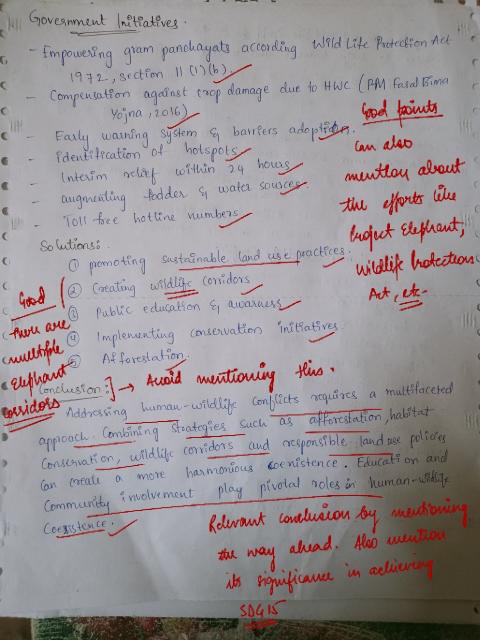 Government Initiatives.
- Empowering gram panchayats according Wild Life Protection Act
1972, section 11 (1) (b).
- Compensation against crop damage due to HWC (PM Fasal Bima
Yojna, 2016)
- Early warning system & barriers adoption.
- Identification of hotspots
- Interim relief within 24 hours
- augmenting fodder & water sources
- Toll free hotline numbers
Good points
can also
mention about
the efforts like
Project Elephant,
Wildlife Protection
Act, etc.
Solutions:
① promoting sustainable land use practices.
② Creating wildlife corridors
③ Public education & awarness
④ Implementing conservation initiatives
⑤ Afforestation.
Good
there are
multiple
Elephant
corridors
Conclusion:] → Avoid mentioning this.
Addressing human-wildlife conflicts requires a multifaceted
approach. Combining strategies such as afforestation, habitat
Conservation, wildlife corridors and responsible land use policies
can create a more harmonious coenistence. Education and
Community involvement play pivotal roles in human-wildlife
Coexistence.
Relevant conclusion by mentioning
the way ahead. Also mention
its significance in achieving
SDG 15